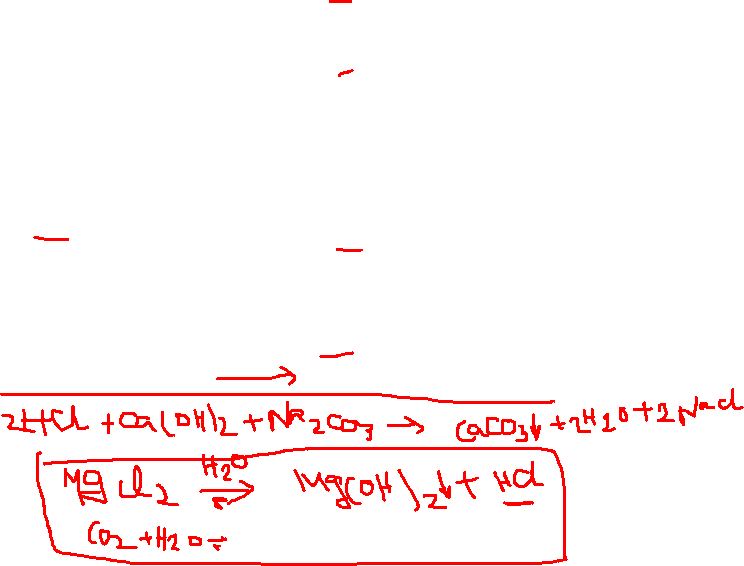 2HCl + Ca(OH)2 + Na2CO3 → CaCO3↓ + 2H2O + 2NaCl
MgCl2 ⇌ H2O Mg(OH)2↓ + HCl
CO2 + H2O ⇌